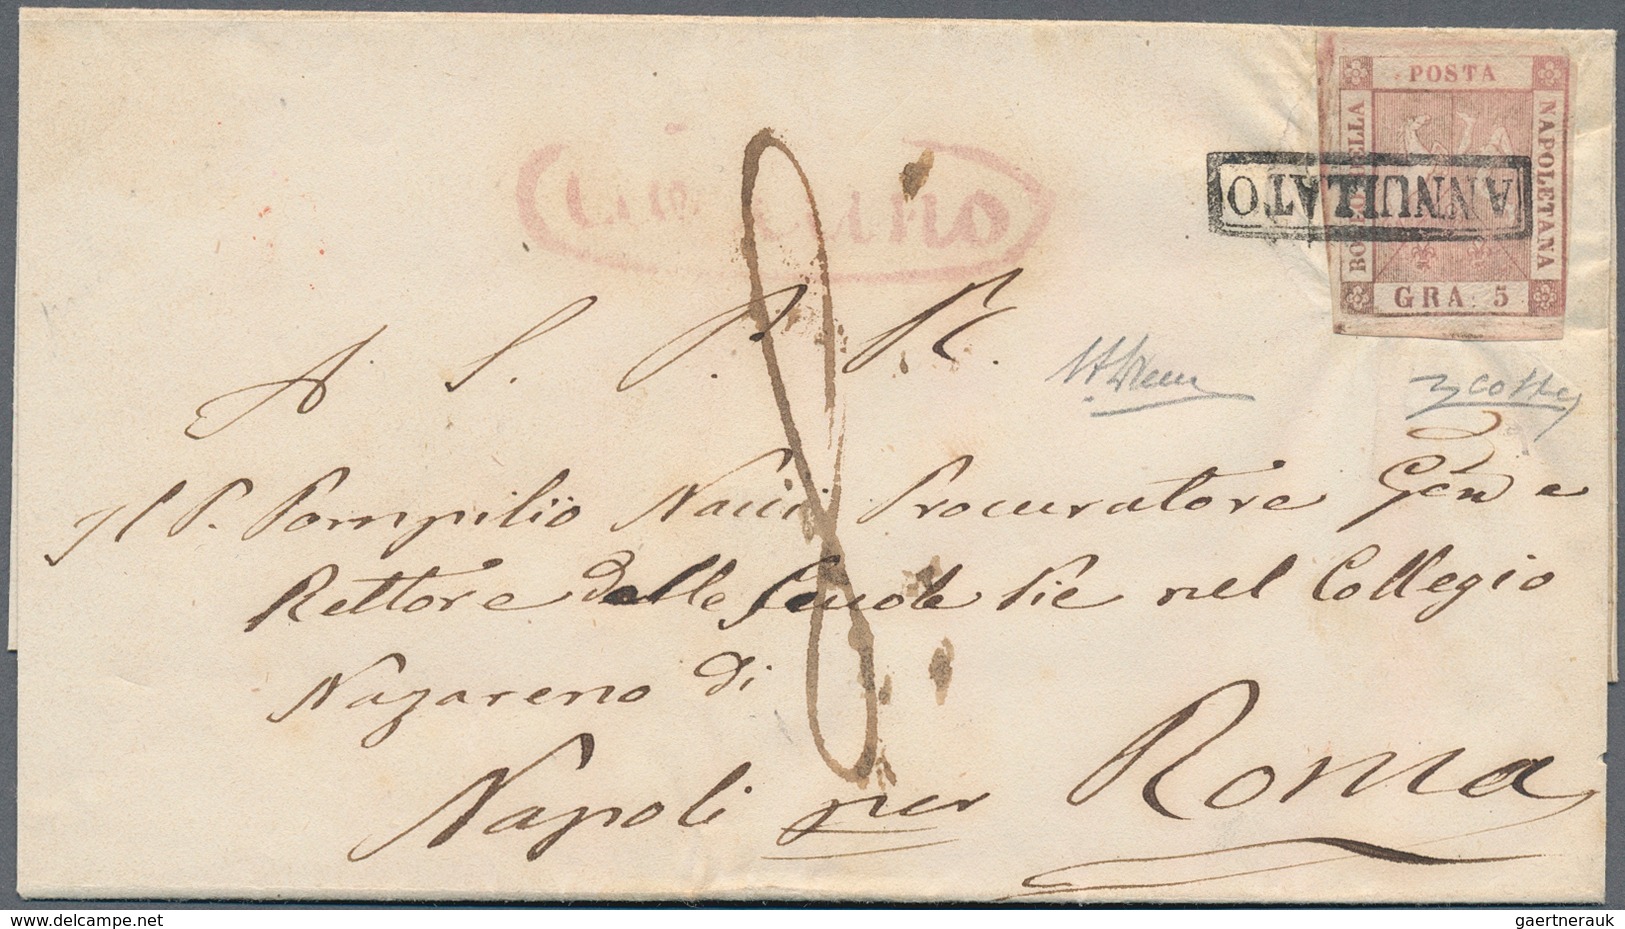 POSTA
NAPOLETANA
GRA. 5
ANNULLATO
A. S. P. R.
Il P. Pompilio Nacci Procuratore Gen e
Rettore delle Scuole Pie nel Collegio
Nazareno di
Napoli per Roma
8
www.delcampe.net
gaertnerauk